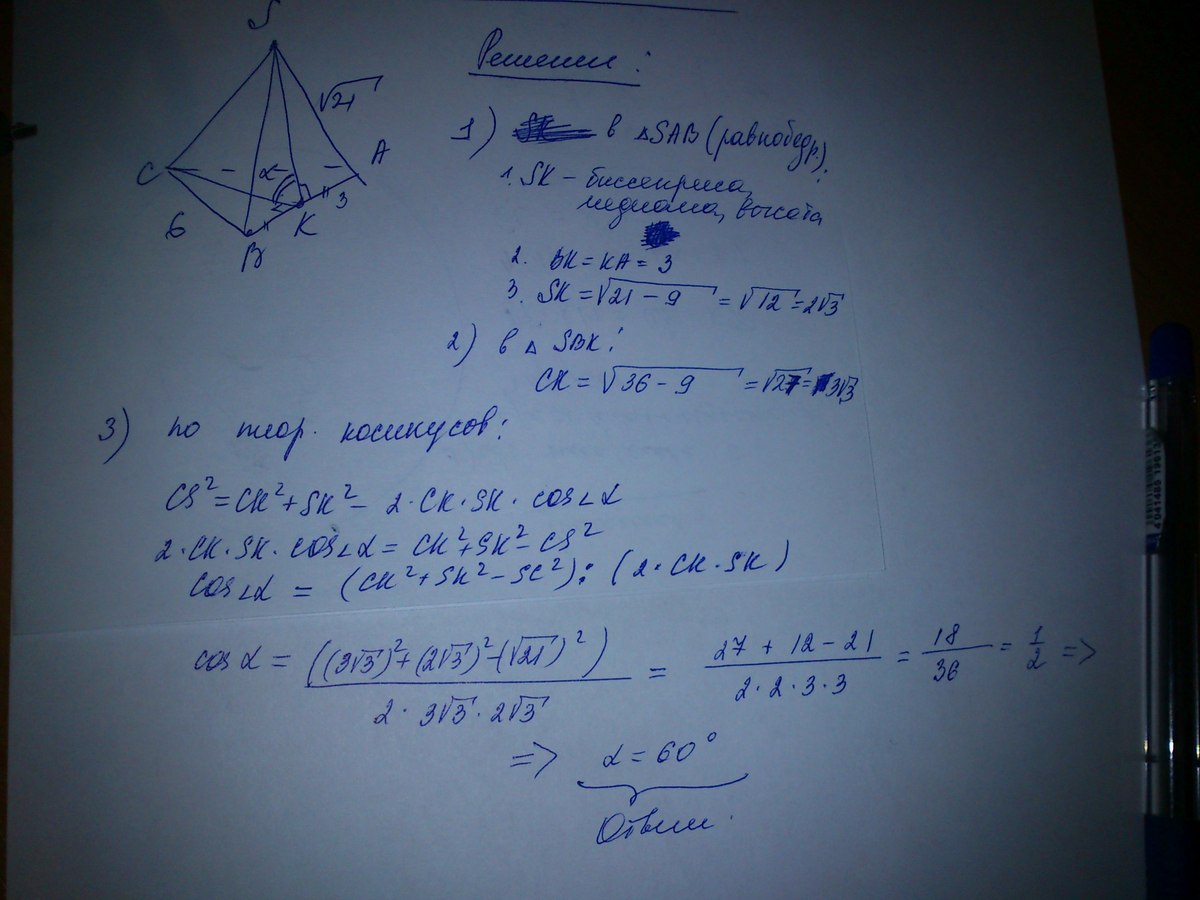 S
√21
C
α
A
6
3
B
K
Решение:
1) в △SAB (равнобедр.):
1. SK – биссектриса,
медиана, высота
2. BK = KA = 3
3. SK = √(21 – 9) = √12 = 2√3
2) в △ SBK:
CK = √(36 – 9) = √27 = 3√3
3) по теор. косинусов:
CS² = CK² + SK² – 2·CK·SK·cos∠α
2·CK·SK·cos∠α = CK² + SK² – CS²
cos∠α = (CK² + SK² – SC²) : (2·CK·SK)
cos α = ((3√3)² + (2√3)² – (√21)²) / (2 · 3√3 · 2√3) = (27 + 12 – 21) / (2·2·3·3) = 18/36 = 1/2 =>
=> α = 60°
Ответ.